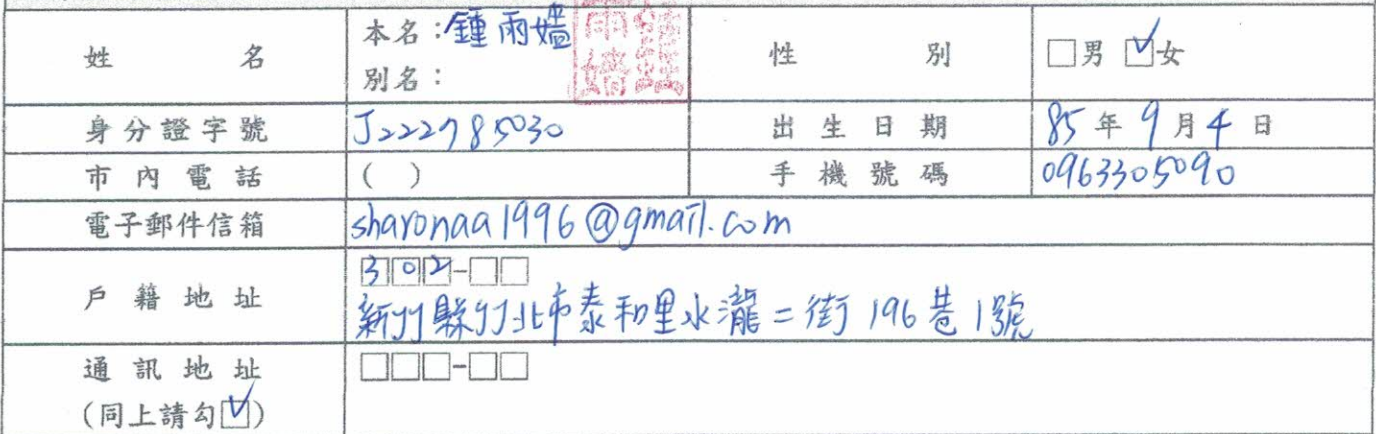 姓名 本名：鍾雨嬙 性別 □男 ☑女
別名：
身分證字號 J222785030 出生日期 85年9月4日
市內電話 ( ) 手機號碼 0963305090
電子郵件信箱 sharonaa1996@gmail.com
302-□□
戶籍地址 新竹縣竹北市泰和里水瀧二街196巷1號
通訊地址 □□□-□□
(同上請勾☑)